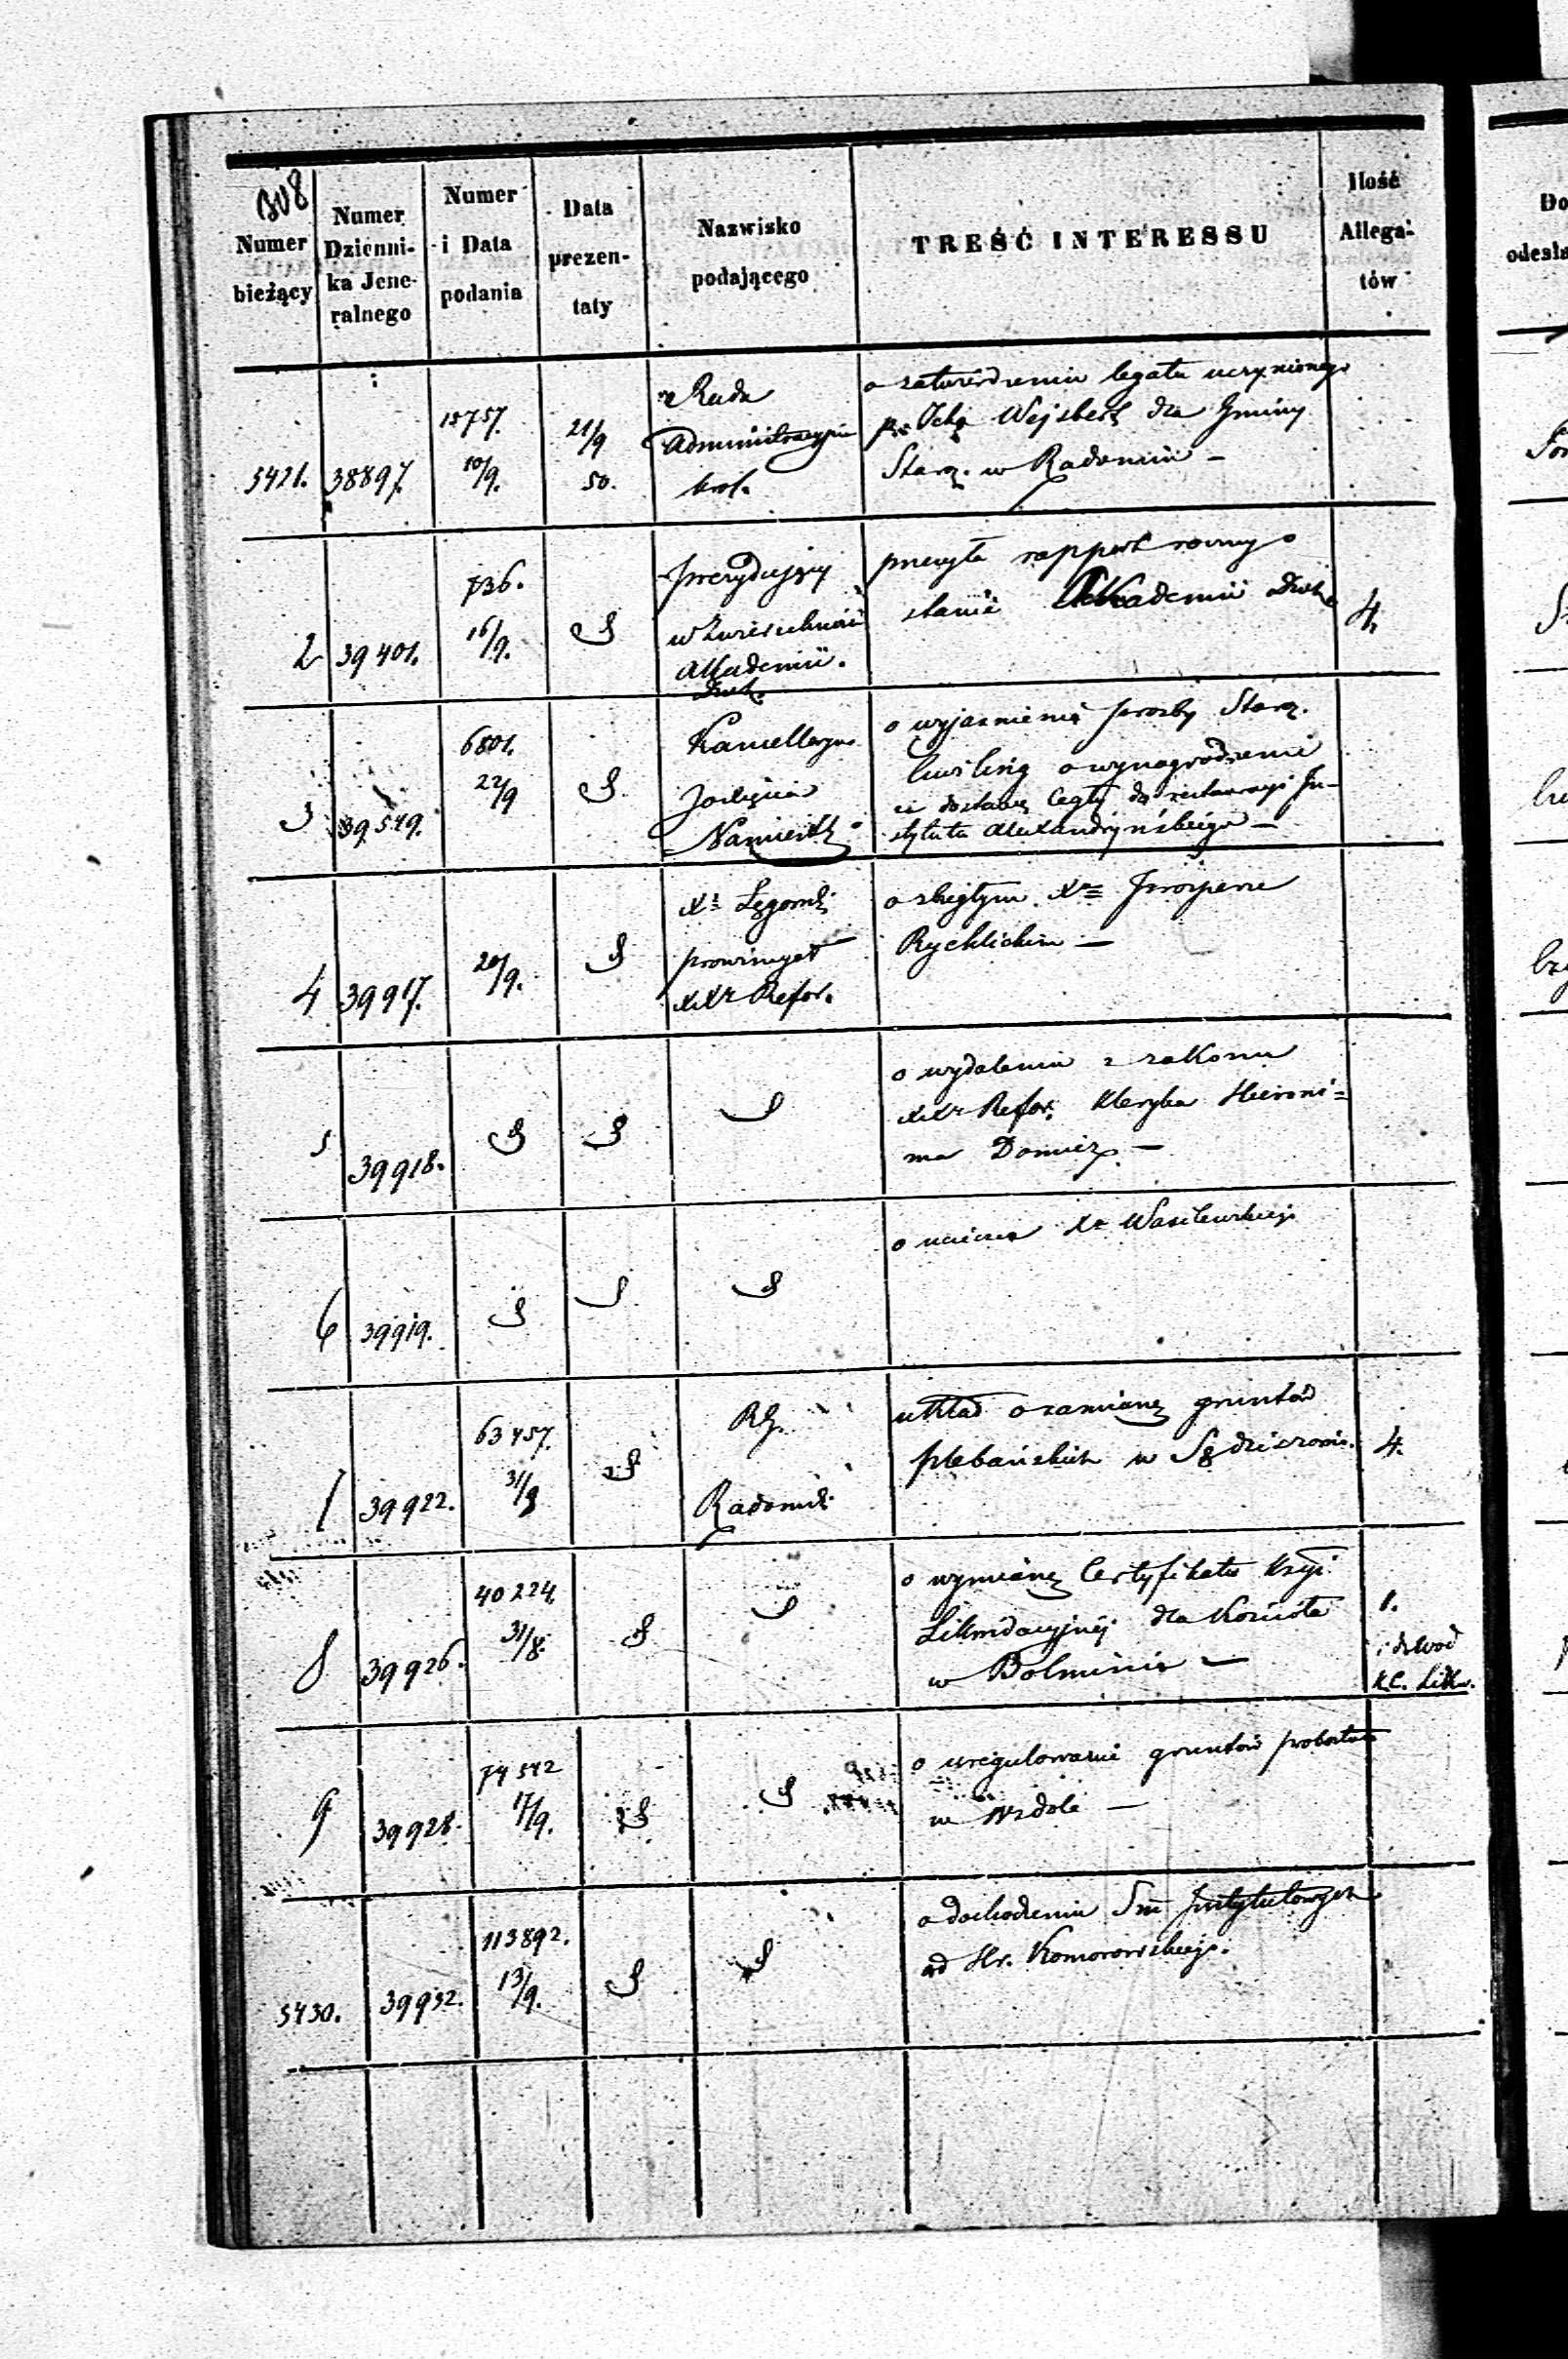 308
Numer bieżący
Numer Dzienni-ka Jene-ralnego
Numer i Data podania
Data prezen-taty
Nazwisko podającego
TREŚĆ INTERESSU
Ilość Allega-tów
5421. 38897. 15757. 10/9. 21/9 50.
Rada
Administracyjna
Król.
o zatwierdzeniu legatu uczynionego
Wejsberg dla Gminy
Staroz. w Radomiu —
2 39401. 736. 16/9.
Prezydujący
w Zwierzchności
Akademii.
Duch.
przesyła rapport roczny o
stanie Akademii Duch.
4.
3 39549. 6801. 22/9
Kancellarya
Namiestn.
o wyjaśnienie prośby Staroz.
o wynagrodzenie
za dostawę cegły do restauracyi In-
stytutu Alexandryńskiego —
4 39917. 20/9.
prowincyał
XXr Refor.
o zbiegłym Xr Prosperze
Rychlickim —
5 39918.
o wydaleniu z zakonu
XXr Refor. kleryka Hieroni-
ma
6 39919.
o Xr Wasilewskiego
7 39922. 63457. 31/8
RG.
Radomsk.
układ o zamianę gruntów
plebańskich w Sędziszowie.
4.
8 39926. 40224. 31/8.
o wymianę Certyfikatu
Likwidacyjnej dla Kościoła
w Bolminie —
1.
i dowód
K.C. Likw.
9 39928. 74542 17/9.
o uregulowanie gruntów probostwa
w Wzdole —
5430. 39932. 113892. 13/9.
o dochodzeniu Summ Instytutowych
od Hr. Komorowskiego.
Do
odesła